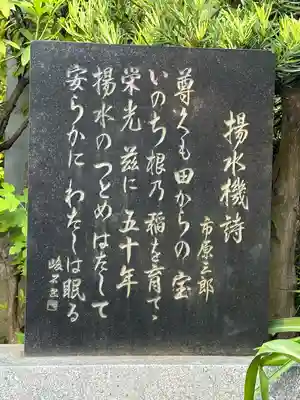 揚水機詩
市原三郎
尊くも田からの宝
いのち根乃稲を育てゝ
栄光茲に五十年
揚水のつとめはたして
安らかにわたしは眠る